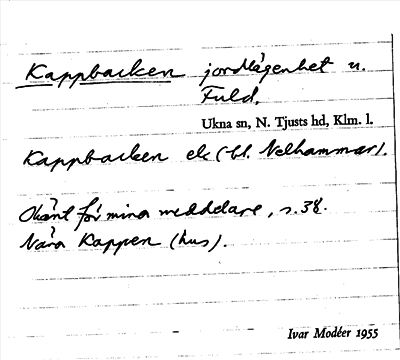 Kappbacken jordlägenhet u.
Fuld.
Ukna sn, N. Tjusts hd, Klm. l.
Kappbacken ek (bl. Nelhammar).
Okänt för mina meddelare, s. 38.
Nära Kappen (hus).
Ivar Modéer 1955